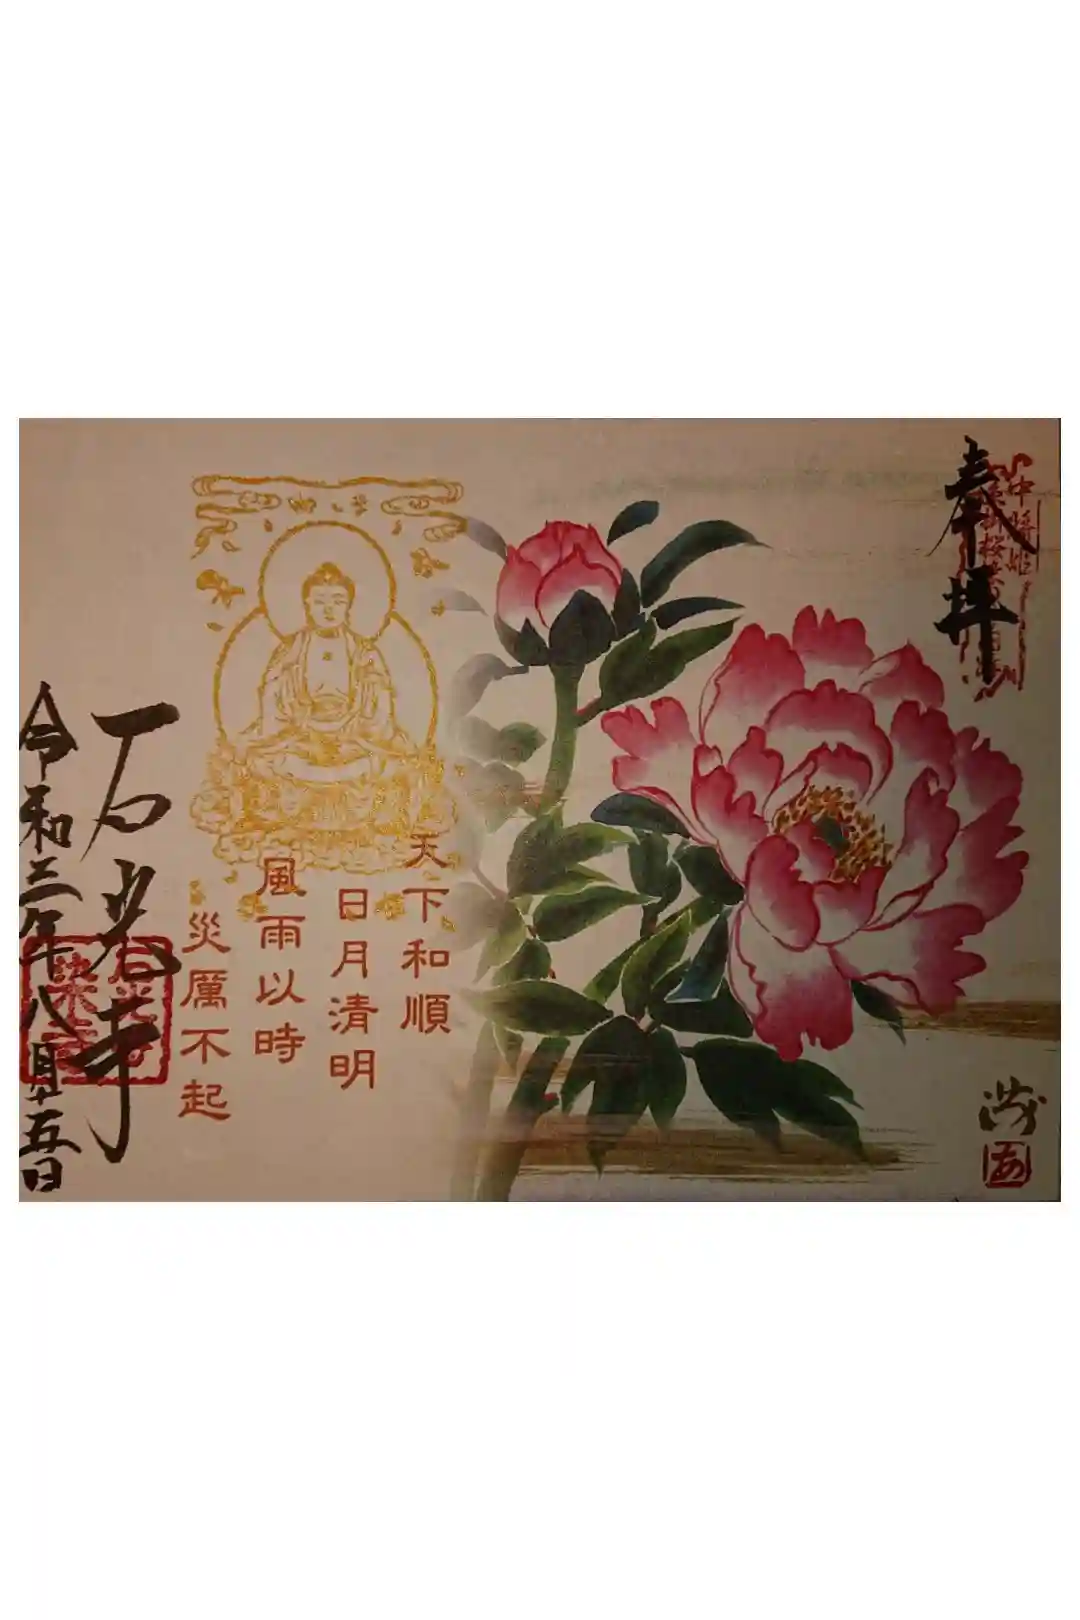 奉拝
中将姫
天下和順
日月清明
風雨以時
災厲不起
石光寺
令和三年八月十五日